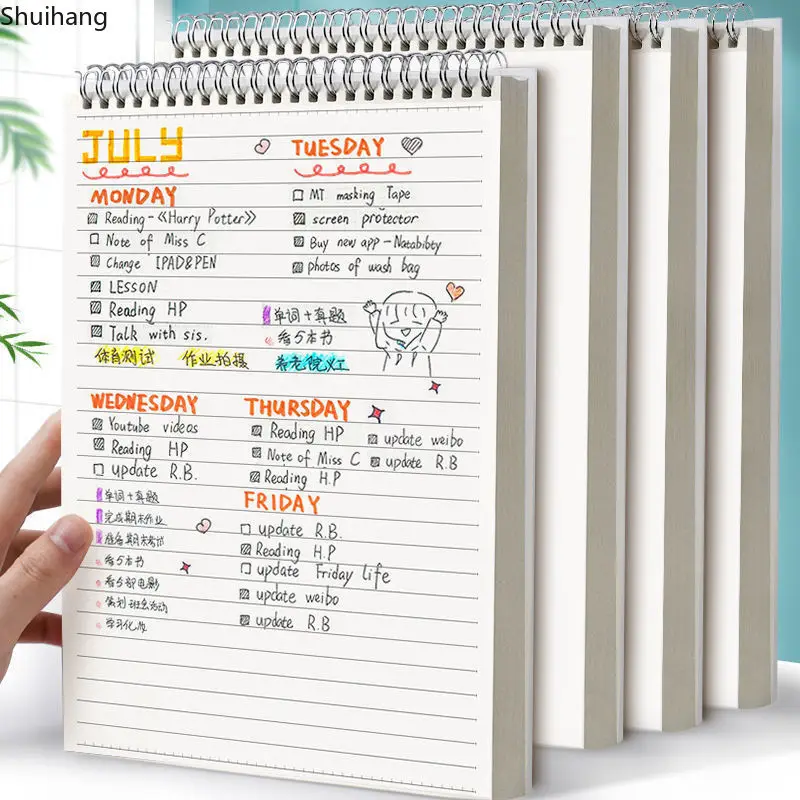 Shuihang
JULY
MONDAY
Reading-《Harry Potter》
Note of Miss C
Change IPAD&PEN
LESSON
Reading HP
Talk with sis.
体育测试 作业拍摄 养老院义工
TUESDAY
MT masking Tape
screen protector
Buy new app-Natabibty
photos of wash bag
单词+真题
看5本书
WEDNESDAY
Youtube videos
Reading HP
update R.B.
单词+真题
完成期末作业
准备期末考试
看5本书
看5部电影
策划班会活动
学习化妆
THURSDAY
Reading HP
Note of Miss C
Reading H.P
update weibo
update R.B
FRIDAY
update R.B.
Reading H.P
update Friday life
update weibo
update R.B